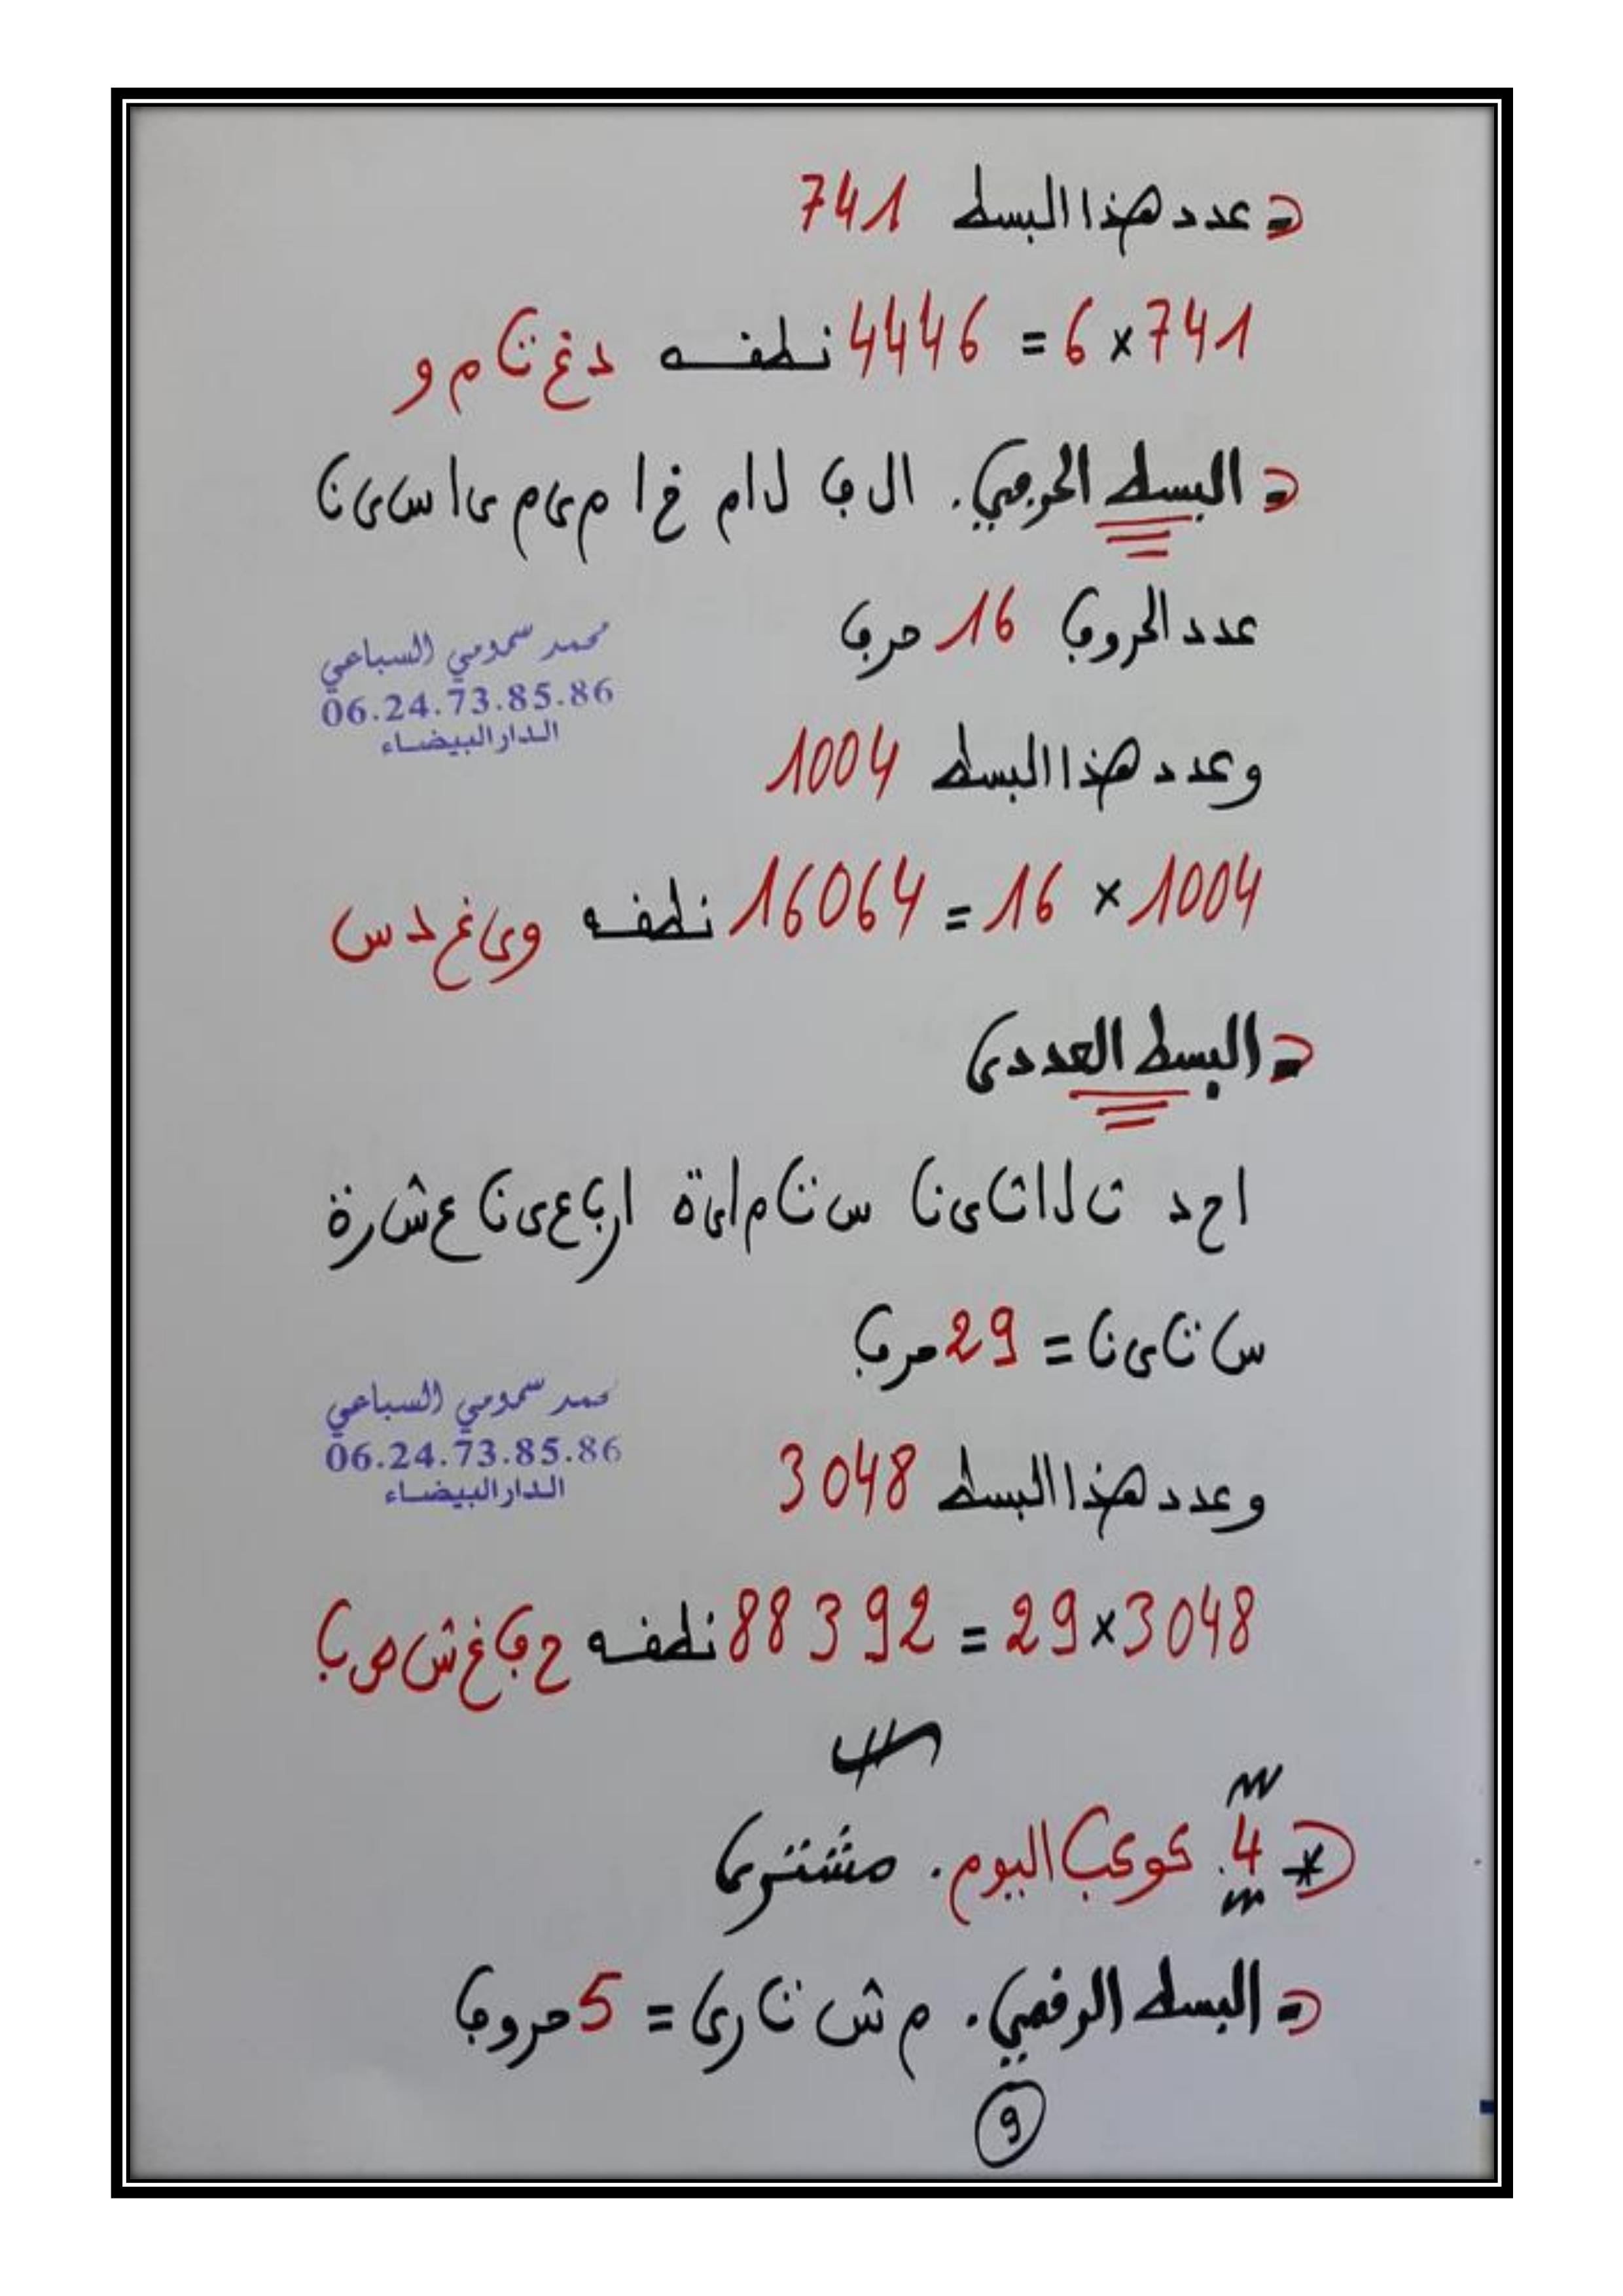 عدد هذا البسط 741
741 × 6 = 4446 نطقه د غ ت م و
البسط الحرفي. ال ف ل ام خ ا م ي م ي ا س ي ن
عدد الحروف 16 حرف
محمد سمومي السباعي
06.24.73.85.86
الدار البيضاء
وعدد هذا البسط 1004
1004 × 16 = 16064 نطقه و ي غ د س
البسط العددي
ا ح د ث ل ا ث ي ن س ت م ا ي ة ا ر ب ع ي ن ع ش ر ة
س ت ي ن = 29 حرف
محمد سمومي السباعي
06.24.73.85.86
الدار البيضاء
وعدد هذا البسط 3048
3048 × 29 = 88392 نطقه ح ف غ ش ص ب
4. كوكب اليوم. مشتري
البسط الرقمي. م ش ت ر ي = 5 حروف
9